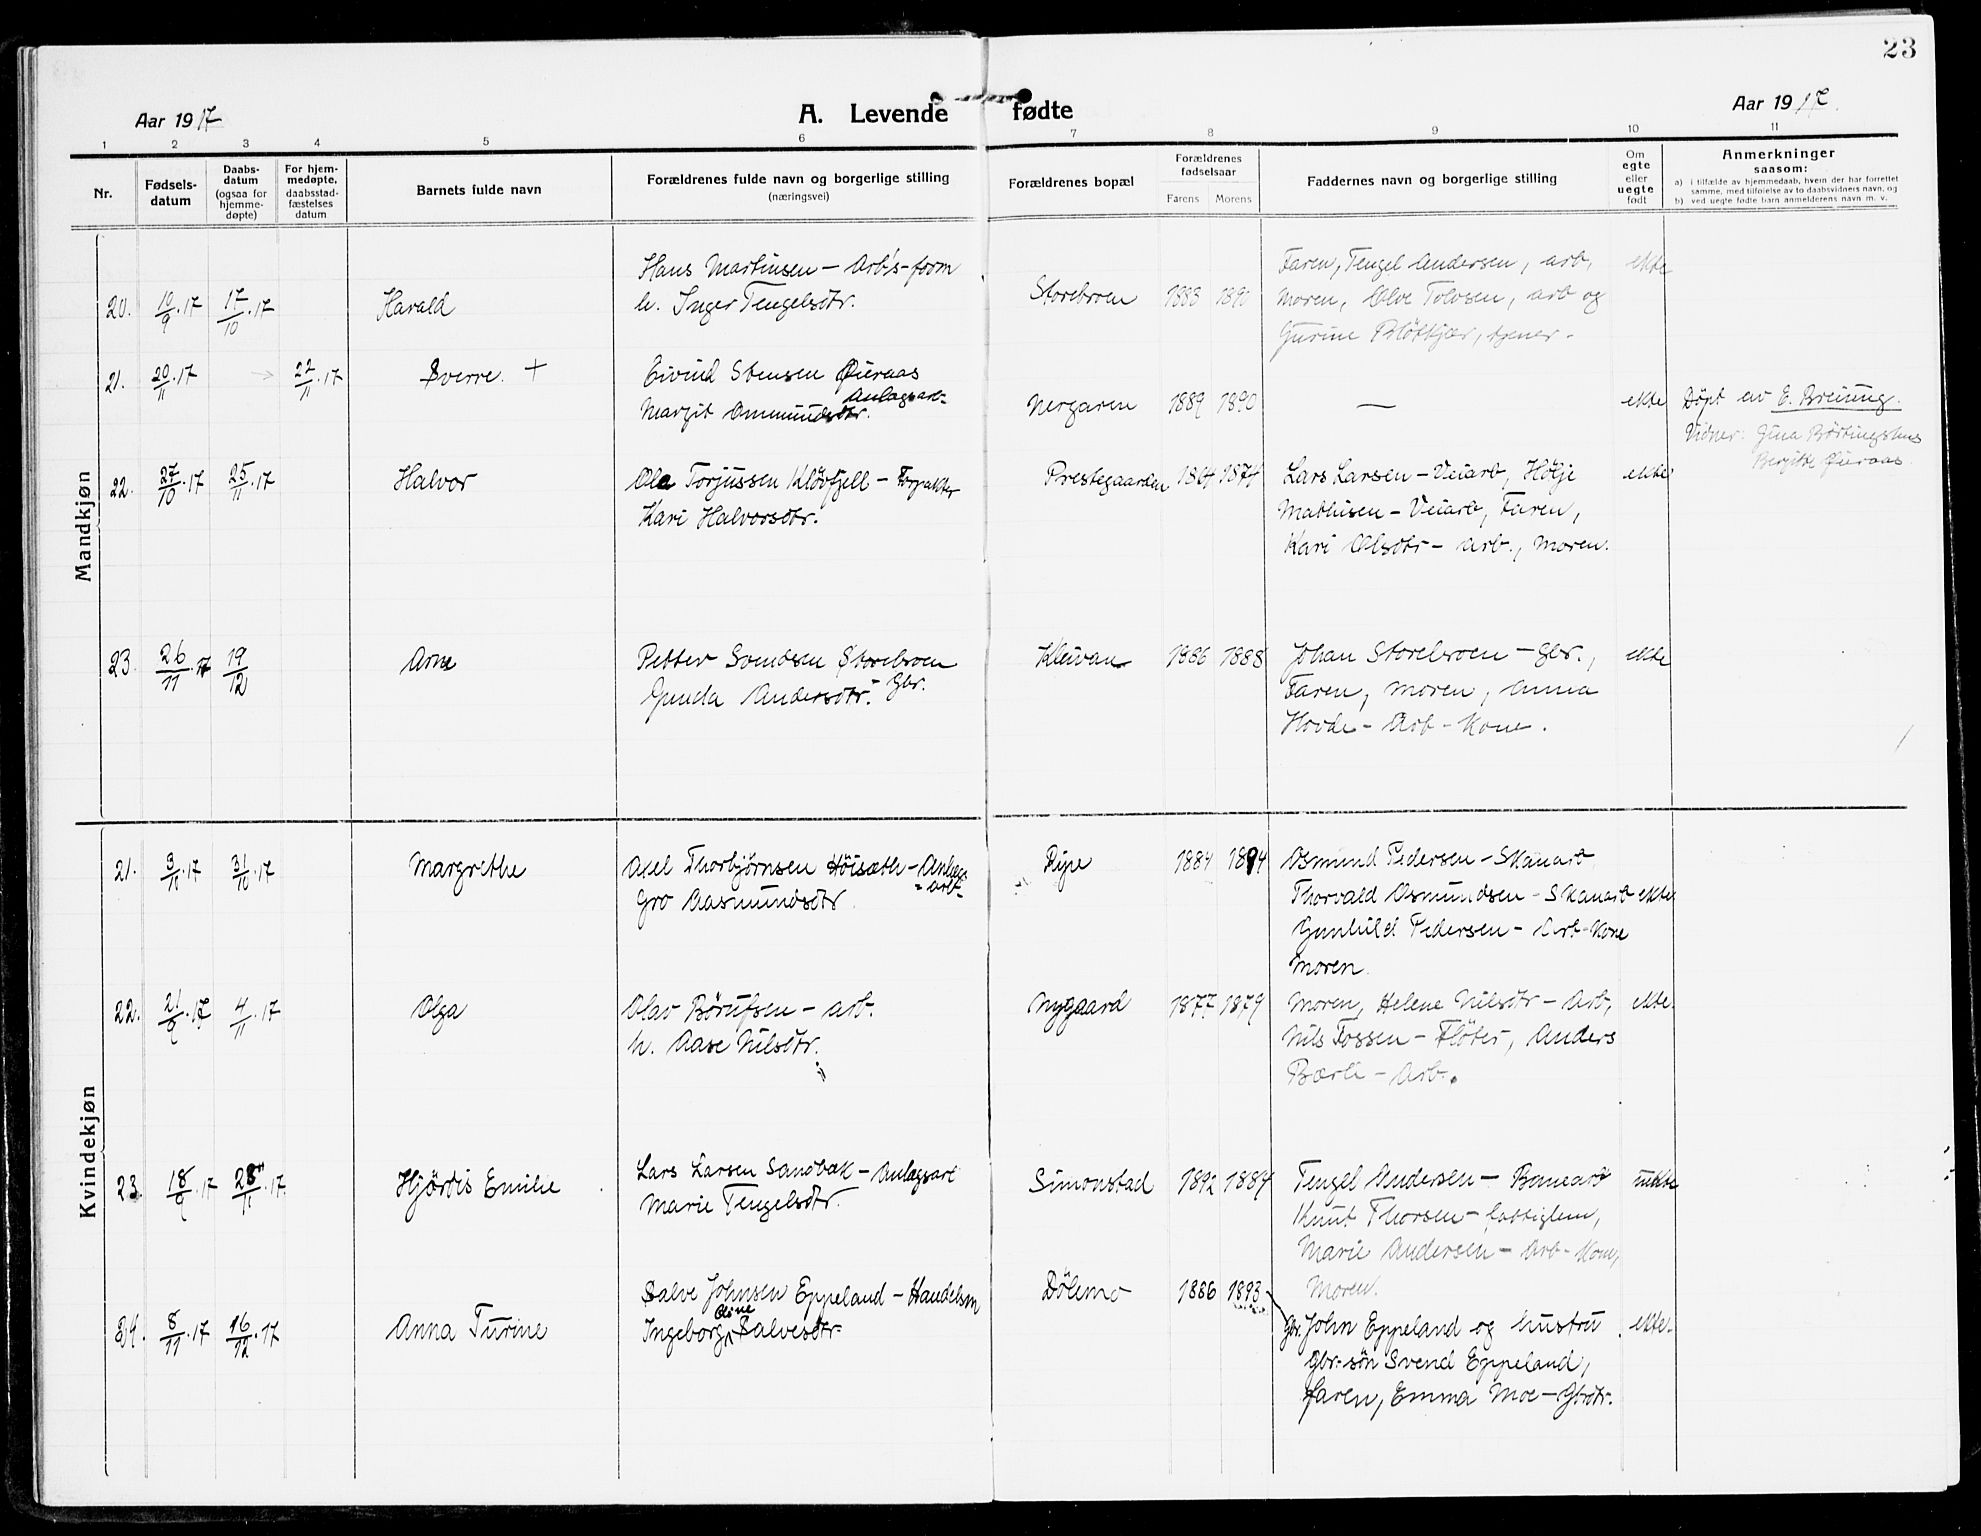 23
Aar 1917
A. Levende fødte
Aar 1917.
1 2 3 4 5 6 7 8 9 10 11
Nr.
Fødsels-
datum
Daabs-
datum
(ogsaa for
hjemme-
døpte)
For hjem-
medøpte,
daabsstad-
fæstelses
datum
Barnets fulde navn
Forældrenes fulde navn og borgerlige stilling
(næringsvei)
Forældrenes bopæl
Forældrenes
fødselsaar
Farens Morens
Faddernes navn og borgerlige stilling
Om
egte
eller
uegte
født
Anmerkninger
saasom:
a) i tilfælde av hjemmedaab, hvem der har forrettet
samme, med tilføielse av to daabsvidners navn, og
b) ved uegte fødte barn anmelderens navn m. v.
Mandkjøn
20. 10/9.17 17/10.17 Harald
Hans Martinsen – Arbs-form
h. Inger Tengelsdtr.
Storebroen 1888 1890
Faren, Tengel Andersen, arb,
Moren, Olve Tolvsen, arb og
Gurine Bløtkjær, tjener.
ekte
21. 20/11.17 22/11.17 Sverre. +
Eivind Stensen Øieraas
Anlagsarb-
Margit Ammundsdtr.
Nergaren 1889 1890 — ekte
Døpt av E. Breiung.
Vidner: Gina Børtingshus
Bergitte Øieraas
22. 27/10.17 25/11.17 Halvor
Ola Torjussen Kløvfjell –
Kari Halvorsdtr.
Prestegaarden 1864 1874
Lars Larsen – Veiarb, Hølje
Mathisen – Veiarb, Faren,
Kari Olsdtr – arb., Moren.
ekte
23. 26/11 17 19/12 Arne
Petter Svendsen Storebroen
Gunda Andersdtr. Gbr.
Kleivan 1886 1888
Johan Storebroen – Gbr.,
Faren, Moren, Anna
Hovde – Arb – Kone.
ekte
Kvindekjøn
21. 3/10.17 31/10.17 Margrethe
Axel Thorbjørnsen Höisæth – Anlægs
-arb-
Gro Aasmundsdtr.
Piye 1884 1894
Osmund Pedersen – Skauarb
Thorvald Osmundsen – Skauarb
Gunhild Pedersen – Arb-Kone
Moren.
ekte
22. 21/9.17 4/11.17 Olga
Olav Børufsen – arb.
h. Aase Nilsdtr.
Nygaard 1877 1879
Moren, Helene Nilsdtr – Arb,
Nils Fossen – Fløter, Anders
Bærli – Arb.
ekte.
23. 18/9.17 28/11.17. Hjørdis Emilie
Lars Larsen Sandbæk – Anlagsarb
Marie Tengelsdtr.
Simonstad 1892 1884
Tengel Andersen – Banearb
Knut Thorsen – fattiglem,
Marie Andersen – Arb-Kone,
Moren.
uekte
24. 8/11.17 16/12.17 Anna Turine
Salve Johnsen Eppeland – Handelsm
Oline
Ingeborg Salvesdtr
Dölemo 1886 1893
Gbr. John Eppeland og hustru
Gbr-søn Svend Eppeland,
faren, Emma Moe – Gbrdtr.
ekte-